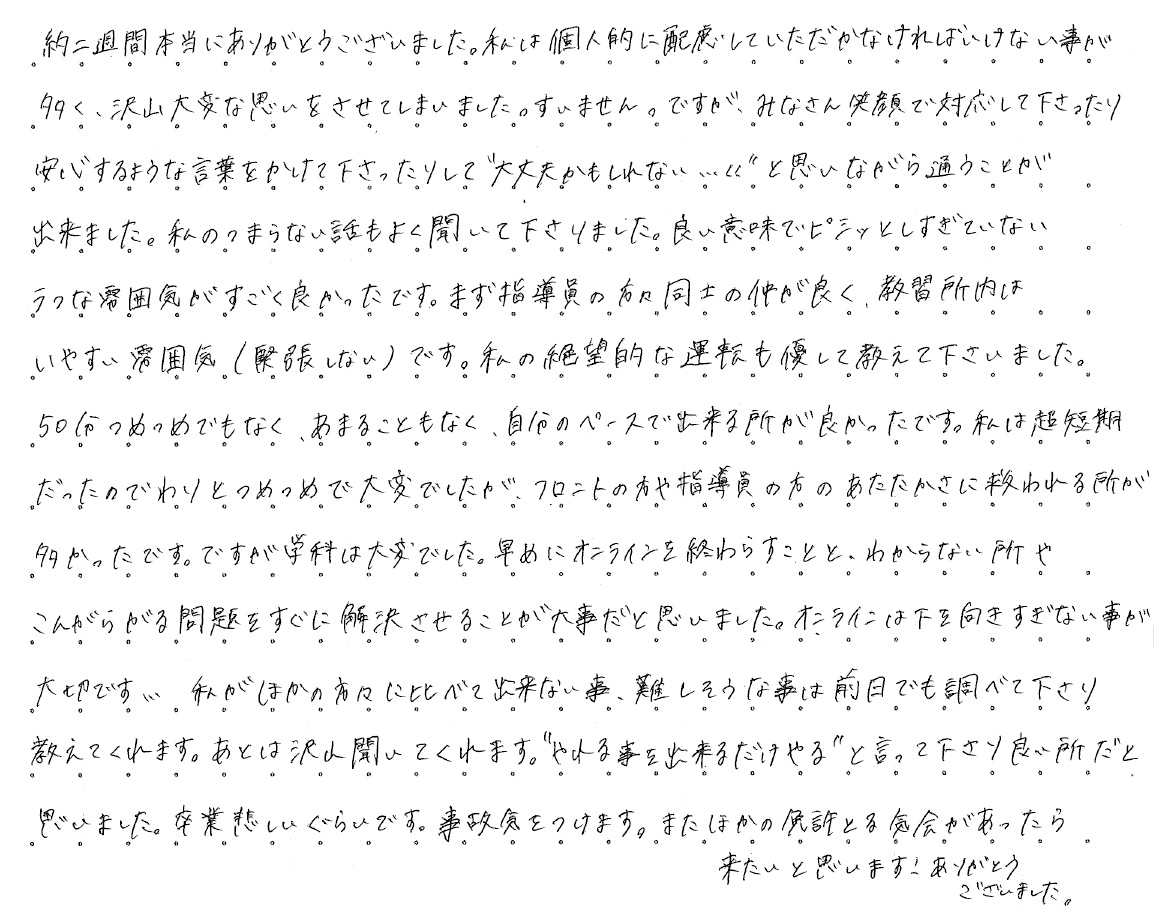 約二週間本当にありがとうございました。私は個人的に配慮していただかなければいけない事が
多く、沢山大変な思いをさせてしまいました。すいません。ですが、みなさん笑顔で対応して下さったり
安心するような言葉をかけて下さったりして"大丈夫かもしれない…"と思いながら通うことが
出来ました。私のつまらない話もよく聞いて下さりました。良い意味でピシッとしすぎていない
ラフな雰囲気がすごく良かったです。まず指導員の方々同士の仲が良く、教習所内は
いやすい雰囲気(緊張しない)です。私の絶望的な運転も優して教えて下さいました。
50分つめつめでもなく、あまることもなく、自分のペースで出来る所が良かったです。私は超短期
だったのでわりとつめつめで大変でしたが、フロントの方や指導員の方のあたたかさに救われる所が
多かったです。ですが学科は大変でした。早めにオンラインを終わらすことと、わからない所や
こんがらがる問題をすぐに解決させることが大事だと思いました。オンラインは下を向きすぎない事が
大切です… 私がほかの方々に比べて出来ない事、難しそうな事は前日でも調べて下さり
教えてくれます。あとは沢山聞いてくれます。"やれる事を出来るだけやる"と言って下さり良い所だと
思いました。卒業悲しいぐらいです。事故気をつけます。またほかの免許とる気会があったら
来たいと思います！ありがとう
ございました。